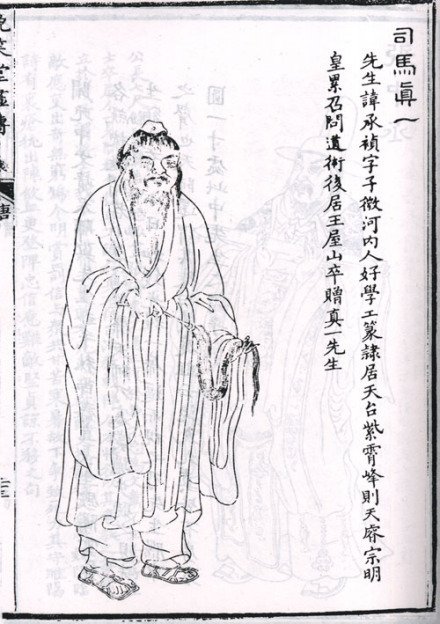 司馬真一
先生諱承禎字子微河內人好學工篆隸居天台紫霄峰則天睿宗明
皇累召問道術後居王屋山卒贈真一先生
晩笑堂畫傳